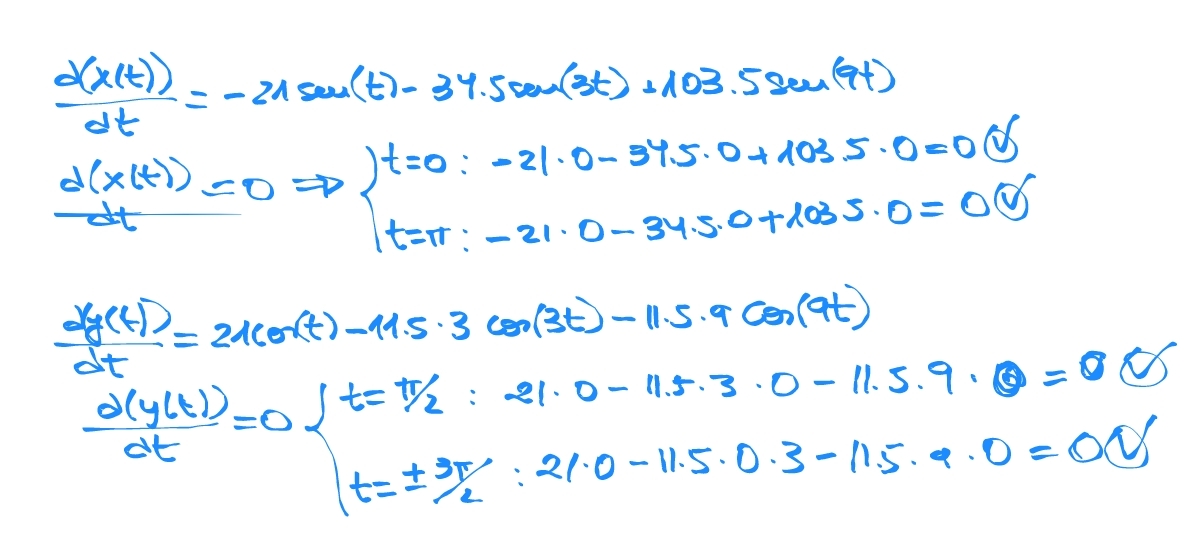 d(x(t))/dt = -21 sen(t) - 34.5 sen(3t) + 103.5 sen(9t)
d(x(t))/dt = 0 ⇒ { t=0 : -21·0 - 34.5·0 + 103.5·0 = 0 ✓
t=π : -21·0 - 34.5·0 + 103.5·0 = 0 ✓
dy(t)/dt = 21 cos(t) - 11.5·3 cos(3t) - 11.5·9 cos(9t)
d(y(t))/dt = 0 { t = π/2 : 21·0 - 11.5·3·0 - 11.5·9·0 = 0 ✓
t = ± 3π/2 : 21·0 - 11.5·0·3 - 11.5·9·0 = 0 ✓